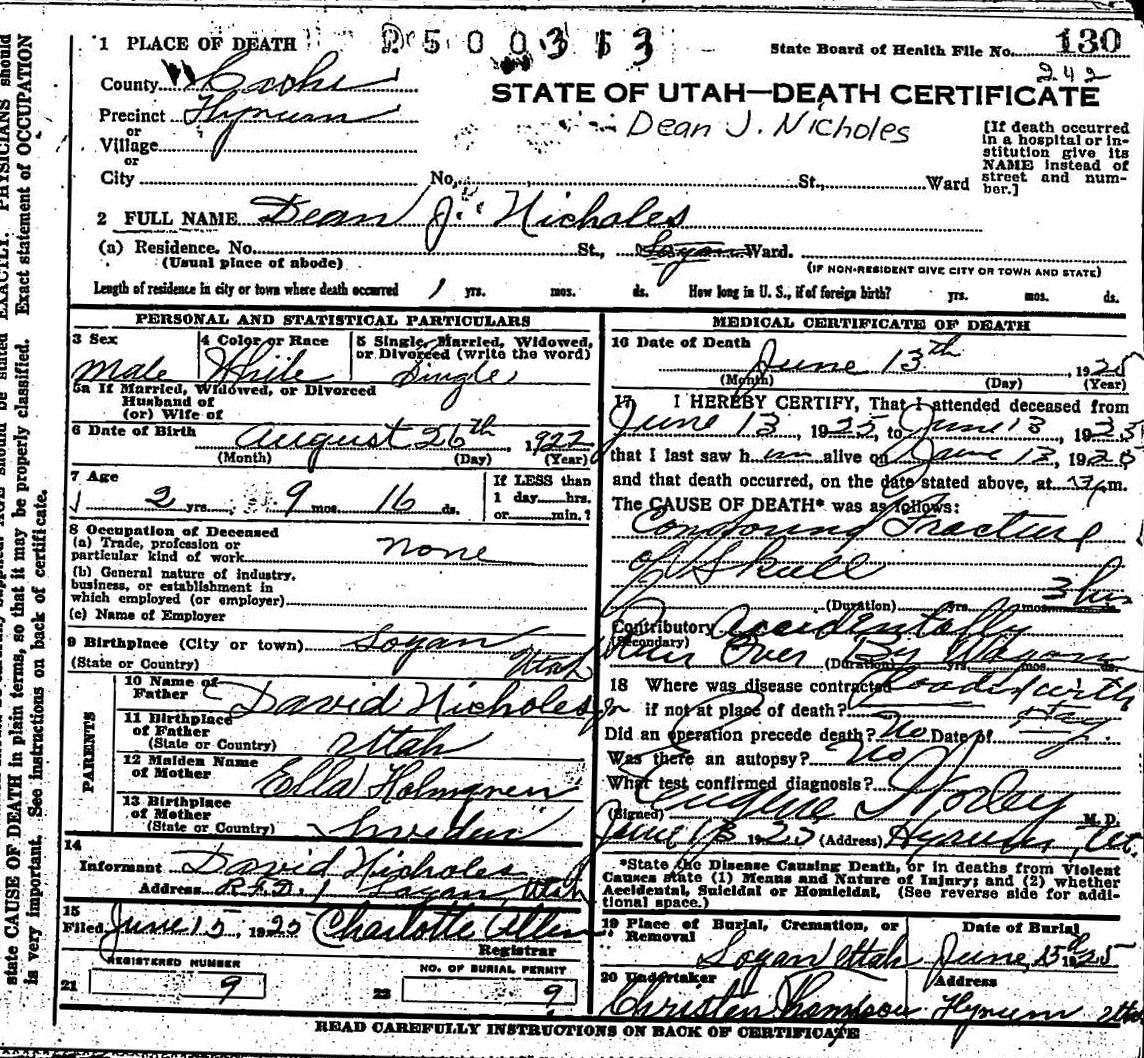 1 PLACE OF DEATH
2500313
State Board of Health File No. 130
242
County Cache
STATE OF UTAH—DEATH CERTIFICATE
Precinct Hyrum
or
Village
or
City No, St., Ward
Dean J. Nicholes
[If death occurred
in a hospital or in-
stitution give its
NAME instead of
street and num-
ber.]
2 FULL NAME Dean J. Nicholes
(a) Residence. No. St., Logan Ward.
(Usual place of abode)
(IF NON-RESIDENT GIVE CITY OR TOWN AND STATE)
Length of residence in city or town where death occurred yrs. mos. ds. How long in U. S., if of foreign birth? yrs. mos. ds.
PERSONAL AND STATISTICAL PARTICULARS
3 Sex 4 Color or Race 5 Single, Married, Widowed,
or Divorced (write the word)
male White Single
5a If Married, Widowed, or Divorced
Husband of
(or) Wife of
6 Date of Birth August 26th, 1922
(Month) (Day) (Year)
7 Age
2 yrs. 9 mos. 16 ds.
If LESS than
1 day hrs.
or min.?
8 Occupation of Deceased
(a) Trade, profession or
particular kind of work none
(b) General nature of industry,
business, or establishment in
which employed (or employer)
(c) Name of Employer
9 Birthplace (City or town) Logan
(State or Country) Utah
PARENTS
10 Name of
Father David Nicholes
11 Birthplace
of Father
(State or Country) Utah
12 Maiden Name
of Mother Ella Holmgren
13 Birthplace
of Mother
(State or Country) Sweden
14
Informant David Nicholes
Address R.F.D. 1 Logan, Utah
15
Filed June 15, 1925 Charlotte Allen
Registrar
REGISTERED NUMBER
21 9
NO. OF BURIAL PERMIT
22 9
MEDICAL CERTIFICATE OF DEATH
16 Date of Death
June 13th 1925
(Month) (Day) (Year)
17 I HEREBY CERTIFY, That I attended deceased from
June 13, 1925, to June 13, 1925
that I last saw him alive on June 13, 1925
and that death occurred, on the date stated above, at m.
The CAUSE OF DEATH* was as follows:
Compound Fracture
of Skull
(Duration) yrs. mos. 3 hrs
Contributory Accidentally
(Secondary)
Run Over By Wagon
(Duration) yrs. mos. ds.
18 Where was disease contracted Loaded with
if not at place of death? Hay
Did an operation precede death? No Date of
Was there an autopsy? No
What test confirmed diagnosis?
(Signed) Eugene Worley M. D.
June 13 1925 (Address) Hyrum, Ut.
*State the Disease Causing Death, or in deaths from Violent
Causes state (1) Means and Nature of Injury; and (2) whether
Accidental, Suicidal or Homicidal. (See reverse side for addi-
tional space.)
19 Place of Burial, Cremation, or
Removal
Logan Utah
Date of Burial
June, 15th 1925
20 Undertaker
Christen Thomson
Address
Hyrum Utah
READ CAREFULLY INSTRUCTIONS ON BACK OF CERTIFICATE
EXACTLY. PHYSICIANS should
state CAUSE OF DEATH in plain terms, so that it may be properly classified. Exact statement of OCCUPATION
is very important. See instructions on back of certificate.